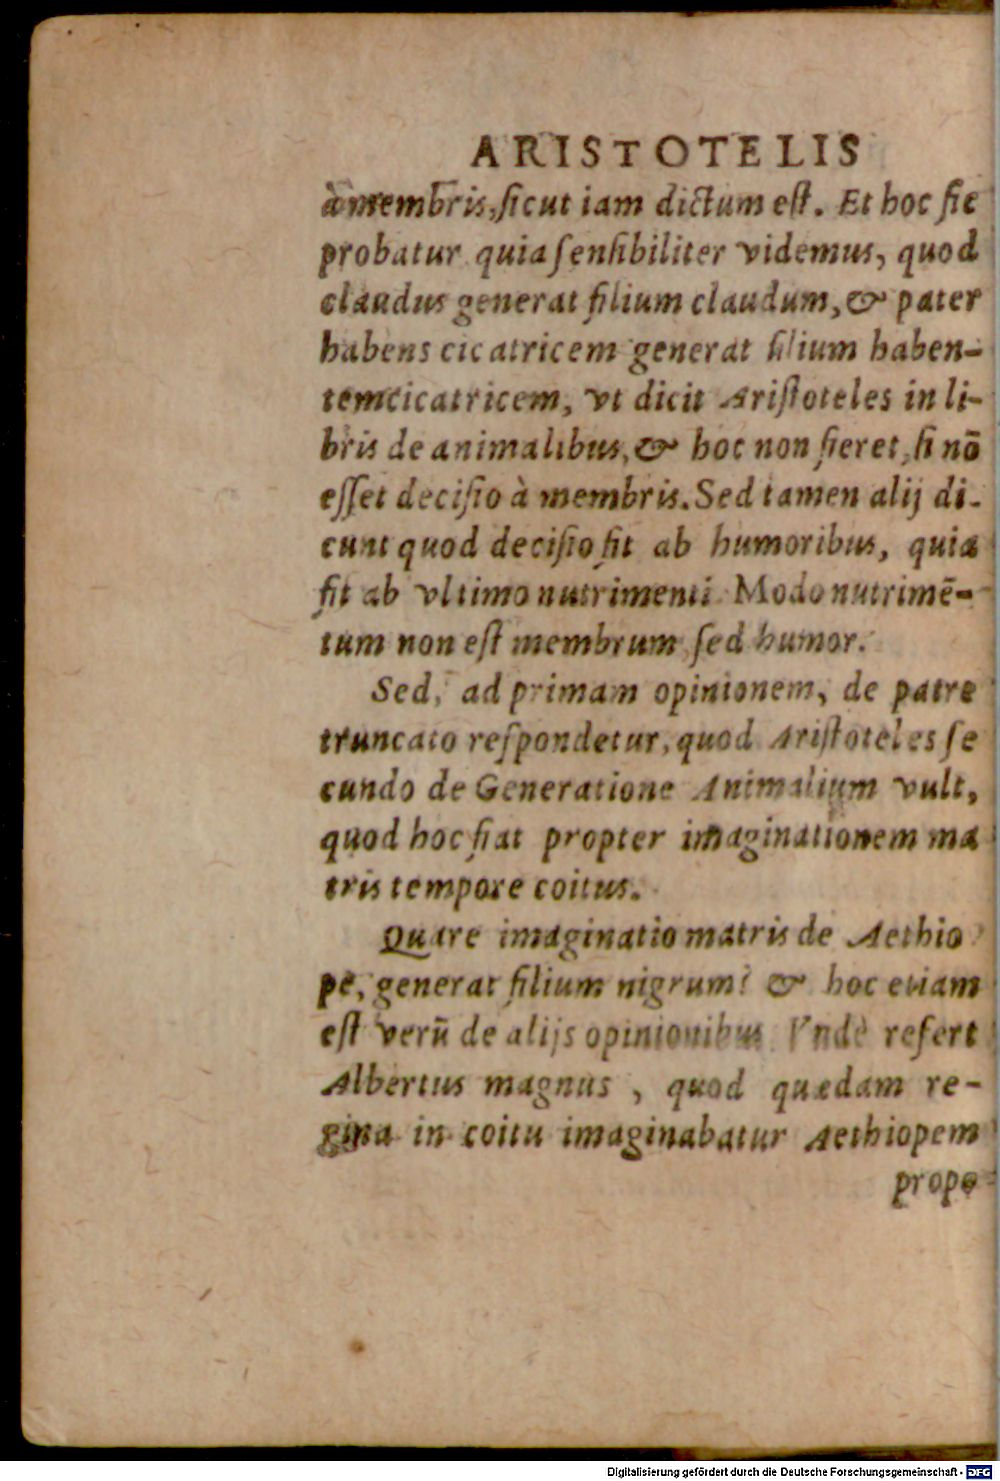 ARISTOTELIS
à membris, sicut iam dictum est. Et hoc sic
probatur quia sensibiliter videmus, quod
claudus generat filium claudum, & pater
habens cicatricem generat filium haben-
tem cicatricem, vt dicit Aristoteles in li-
bris de animalibus, & hoc non fieret, si nō
esset decisio à membris. Sed tamen alij di-
cunt quod decisio fit ab humoribus, quia
fit ab vltimo nutrimenti. Modo nutrimē-
tum non est membrum sed humor.
Sed, ad primam opinionem, de patre
truncato respondetur, quod Aristoteles se
cundo de Generatione Animalium vult,
quod hoc fiat propter imaginationem ma
tris tempore coitus.
Quare imaginatio matris de Aethio
pe, generat filium nigrum? & hoc etiam
est verū de alijs opinionibus. Vndè refert
Albertus magnus, quod quædam re-
gina in coitu imaginabatur Aethiopem
prope
Digitalisierung gefördert durch die Deutsche Forschungsgemeinschaft - DFG